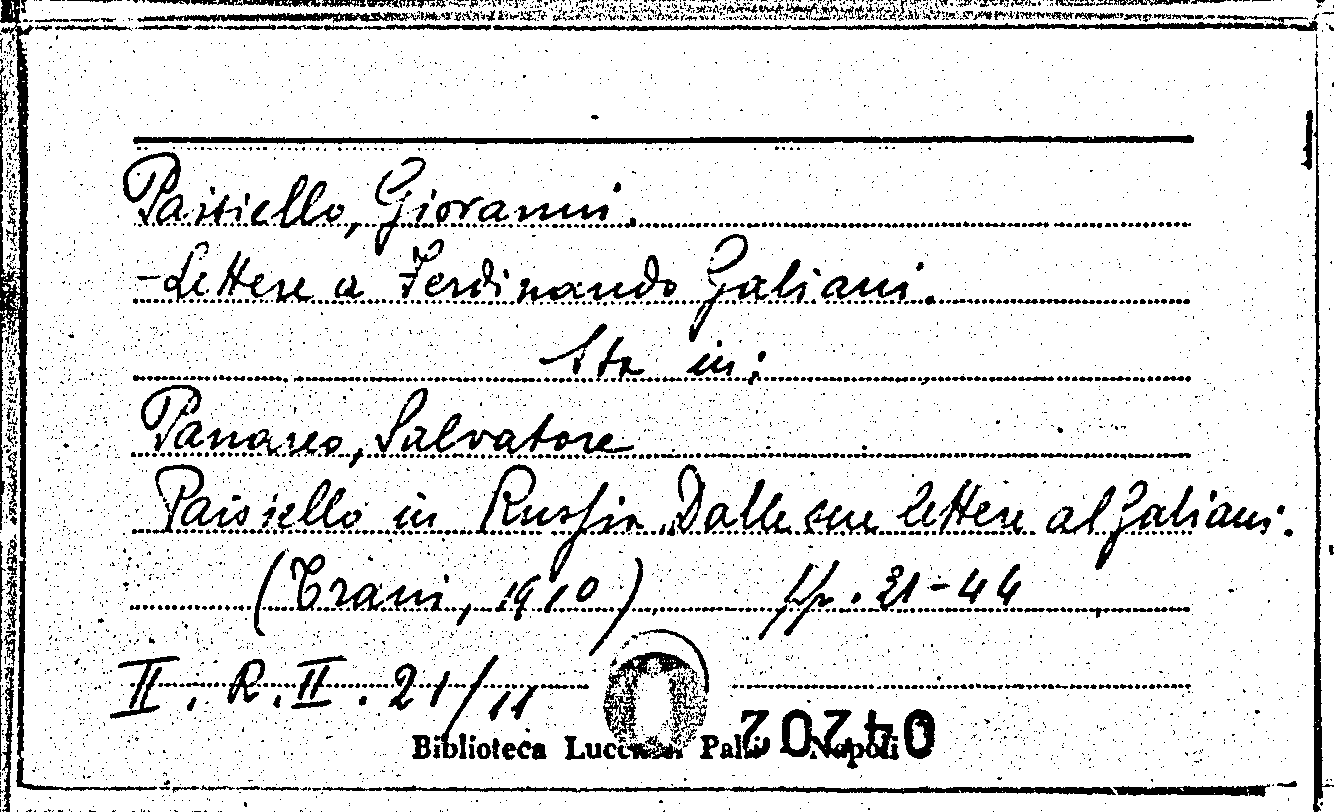 Paisiello, Giovanni.
- Lettere a Ferdinando Galiani.
Sta in:
Panareo, Salvatore
Paisiello in Russia. Dalle sue lettere al Galiani.
(Trani, 1910) pp. 21-44
II. R. II. 21/11
04202
Biblioteca Lucchesi Palli Napoli